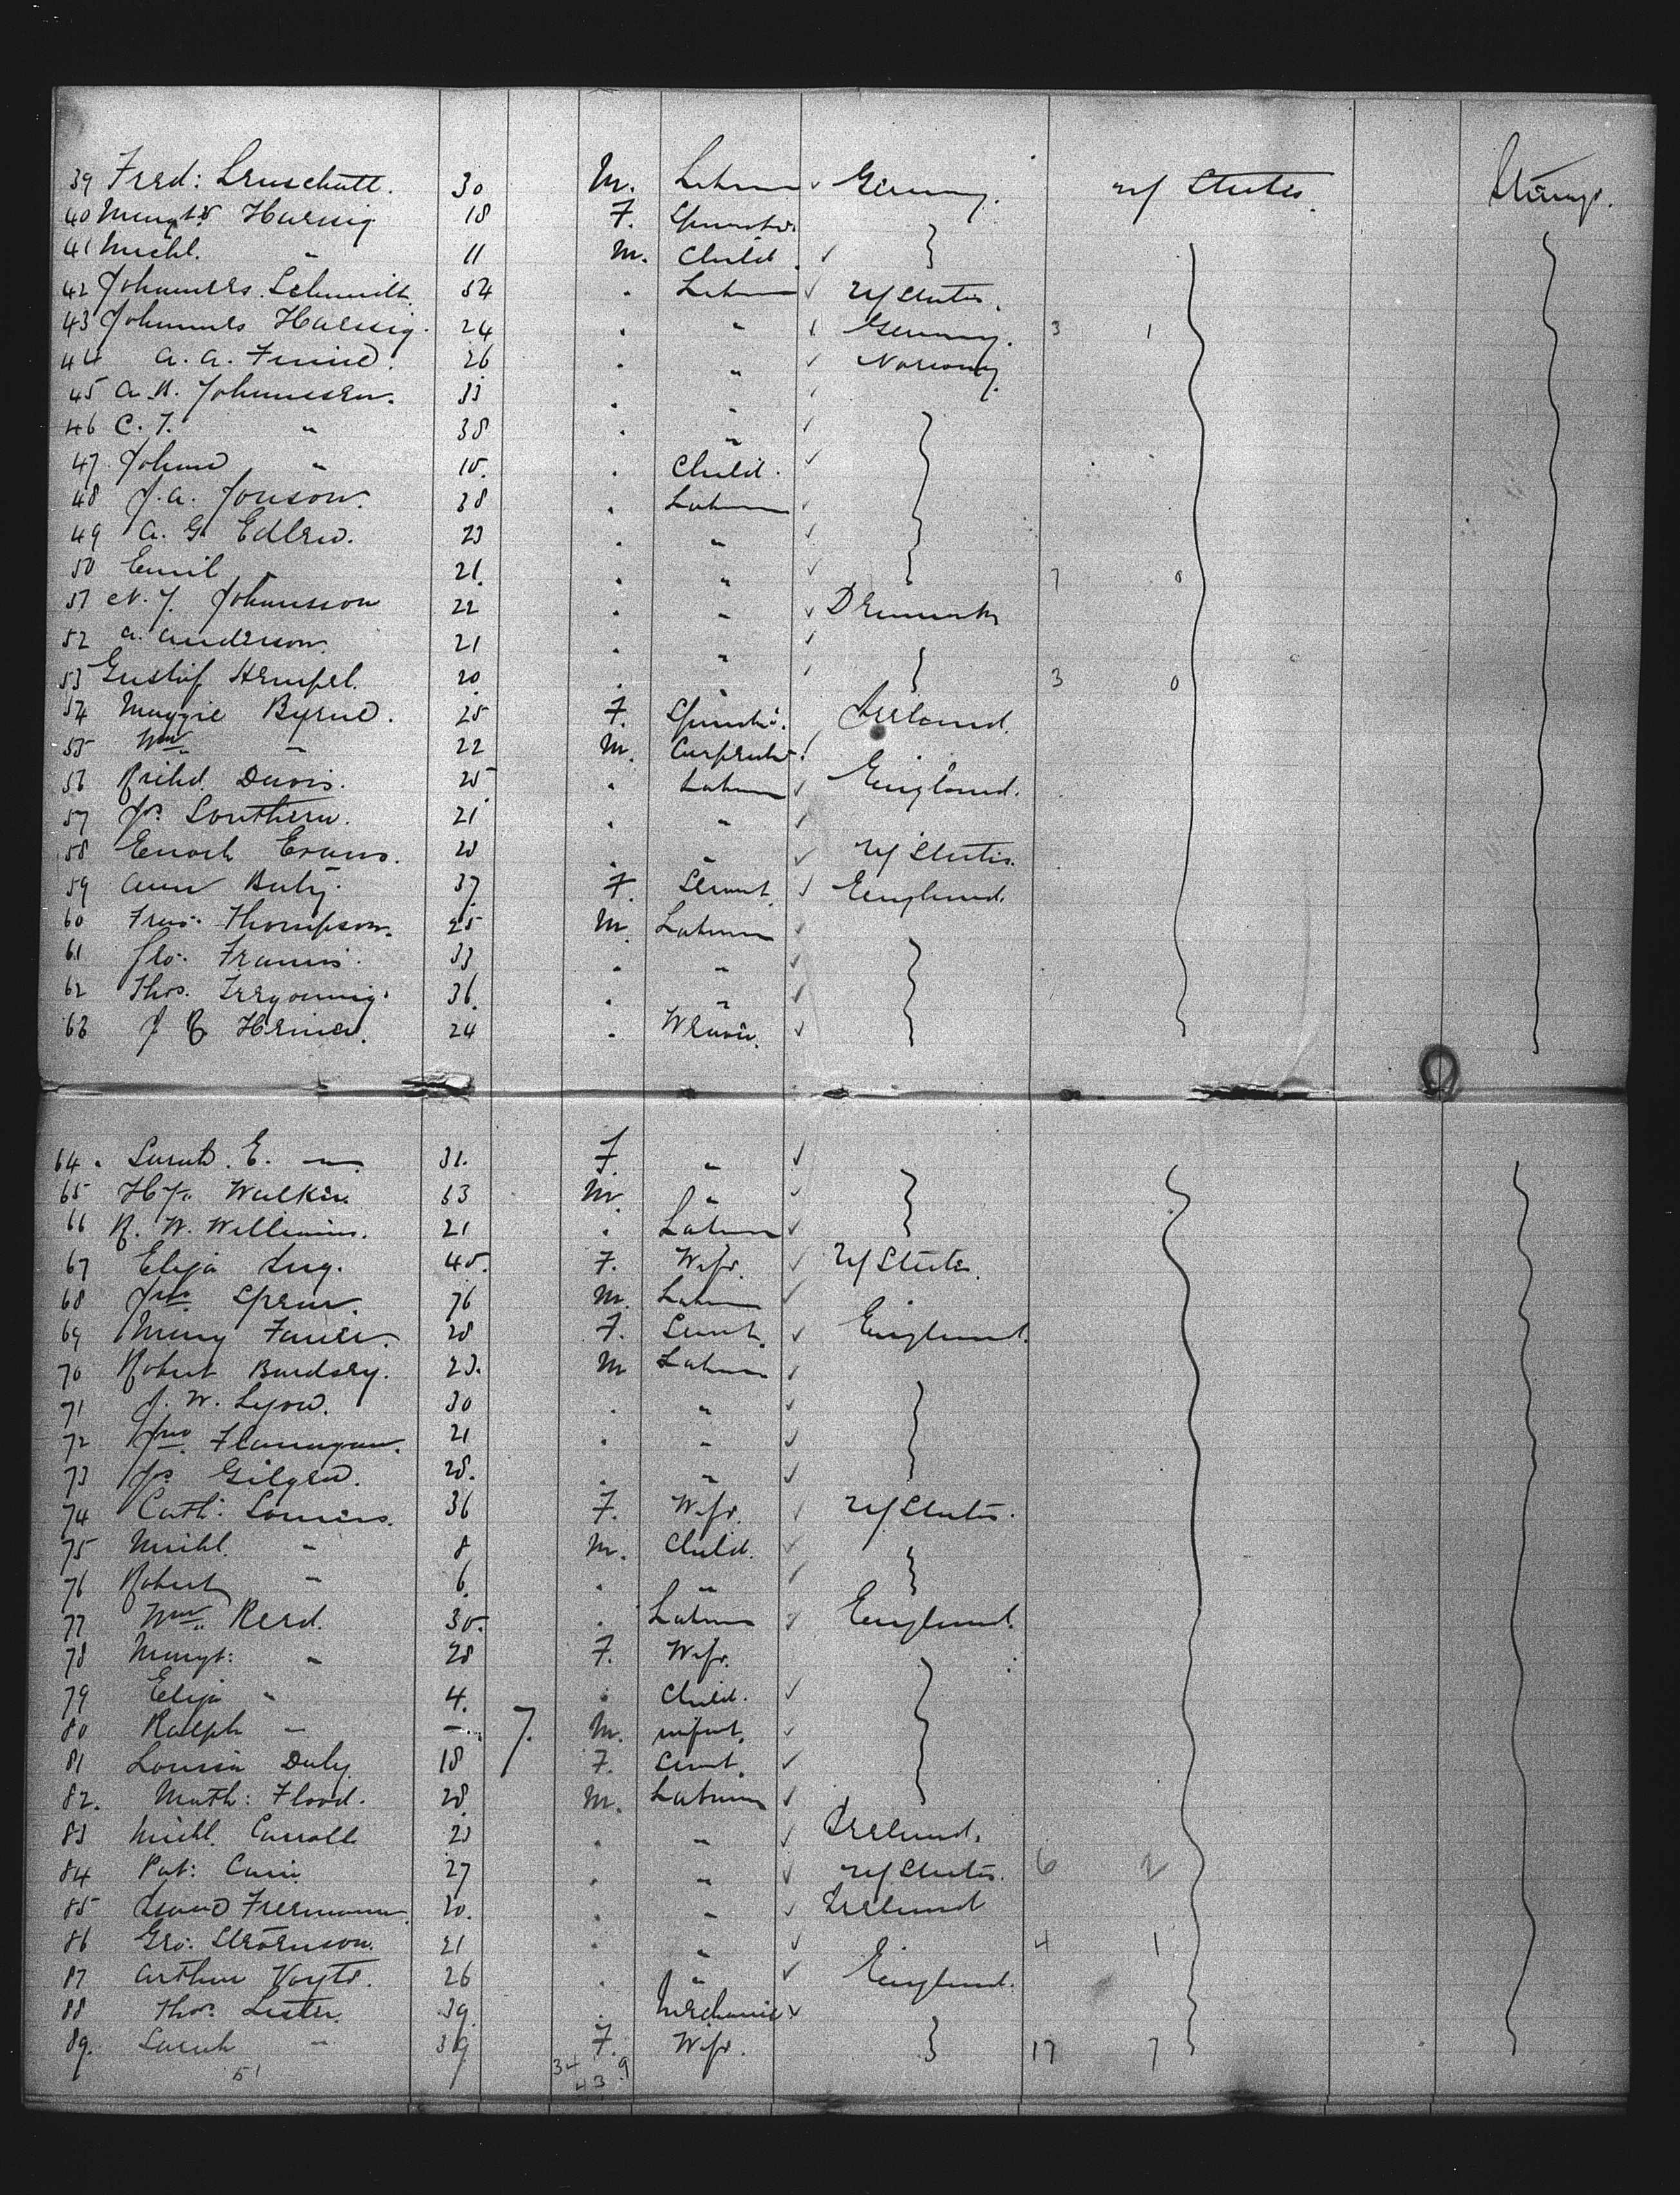 39 Fred: Leuschutt. 30 M. Labourer ✓ Germany. U/ States. Steerage.
40 Margt Harnig 18 F. Spinster.
41 Michl. " 11 M. Child. ✓
42 Johannes Schmidt 54 . Labr ✓ U/ States.
43 Johannes Harnig. 24 . " ✓ Germany. 3 1
44 A. A. 26 . " ✓ Norway.
45 A. B. Johannesen. 33 . " ✓
46 C. J. " 38 . " ✓
47 Johan " 10. . Child. ✓
48 J. A. Jonson. 38 . Labr ✓
49 A. G. Edlen. 23 . " ✓
50 Emil " 21. . " ✓ 7 0
51 N. J. Johansson 22 . " ✓ Denmark
52 A. Anderson. 21 . " ✓
53 Gustaf Hempel. 20 . " ✓ 3 0
54 Maggie Byrne. 25 F. Spinster. Ireland.
55 Wm " 22 M. Carpenter.
56 Richd. Davis. 25 . Labr ✓ England.
57 Js. Southern. 21 . " ✓
58 Enoch Evans. 20 . " ✓ U/ States.
59 Ann 37 F. Servt. ✓ England.
60 Fras. Thompson. 25 M. Labourer ✓
61 Geo. Francis. 33 . " ✓
62 Thos. Tregonnig. 36. . " ✓
63 J 24 . Weaver. ✓
64. Sarah. E. " 31. F. " ✓
65 Hy. Walker. 63 M. " ✓
66 R. W. Williams. 21 . Labr ✓
67 Eliza 45. F. Wife. ✓ U/ States.
68 Jno. Spear. 76 M. Labr ✓
69 Mary 20 F. Servt. ✓ England.
70 Robert Bardsey. 23. M Labr ✓
71 J. W. Lyon. 30 . " ✓
72 Jno Flanagan. 21 . " ✓
73 Js. Gilgen. 28. . " ✓
74 Cath: 36 F. Wife. ✓ U/ States.
75 Michl. " 8 M. Child. ✓
76 Robert " 6. . " ✓
77 Wm. Reed. 30. . Labr ✓ England.
78 Margt: " 28 F. Wife.
79 Eliza " 4. . Child. ✓
80 Ralph " — 7. M. infant. ✓
81 Louisa Daly. 18 F. Servt. ✓
82. Math: Flood. 28 M. Labourer ✓
83 Michl. Carroll 23 . " ✓ Ireland.
84 Pat: 27 . " ✓ U/ States. 6 2
85 Freemann. 20. . " ✓ Ireland
86 Geo. 21 . " ✓ 4 1
87 Arthur 26 . " ✓ England.
88 Thos. Lister. 39. . Mechanic ✓
89. Sarah " 39 F. Wife. 17 7
51 34 43 9